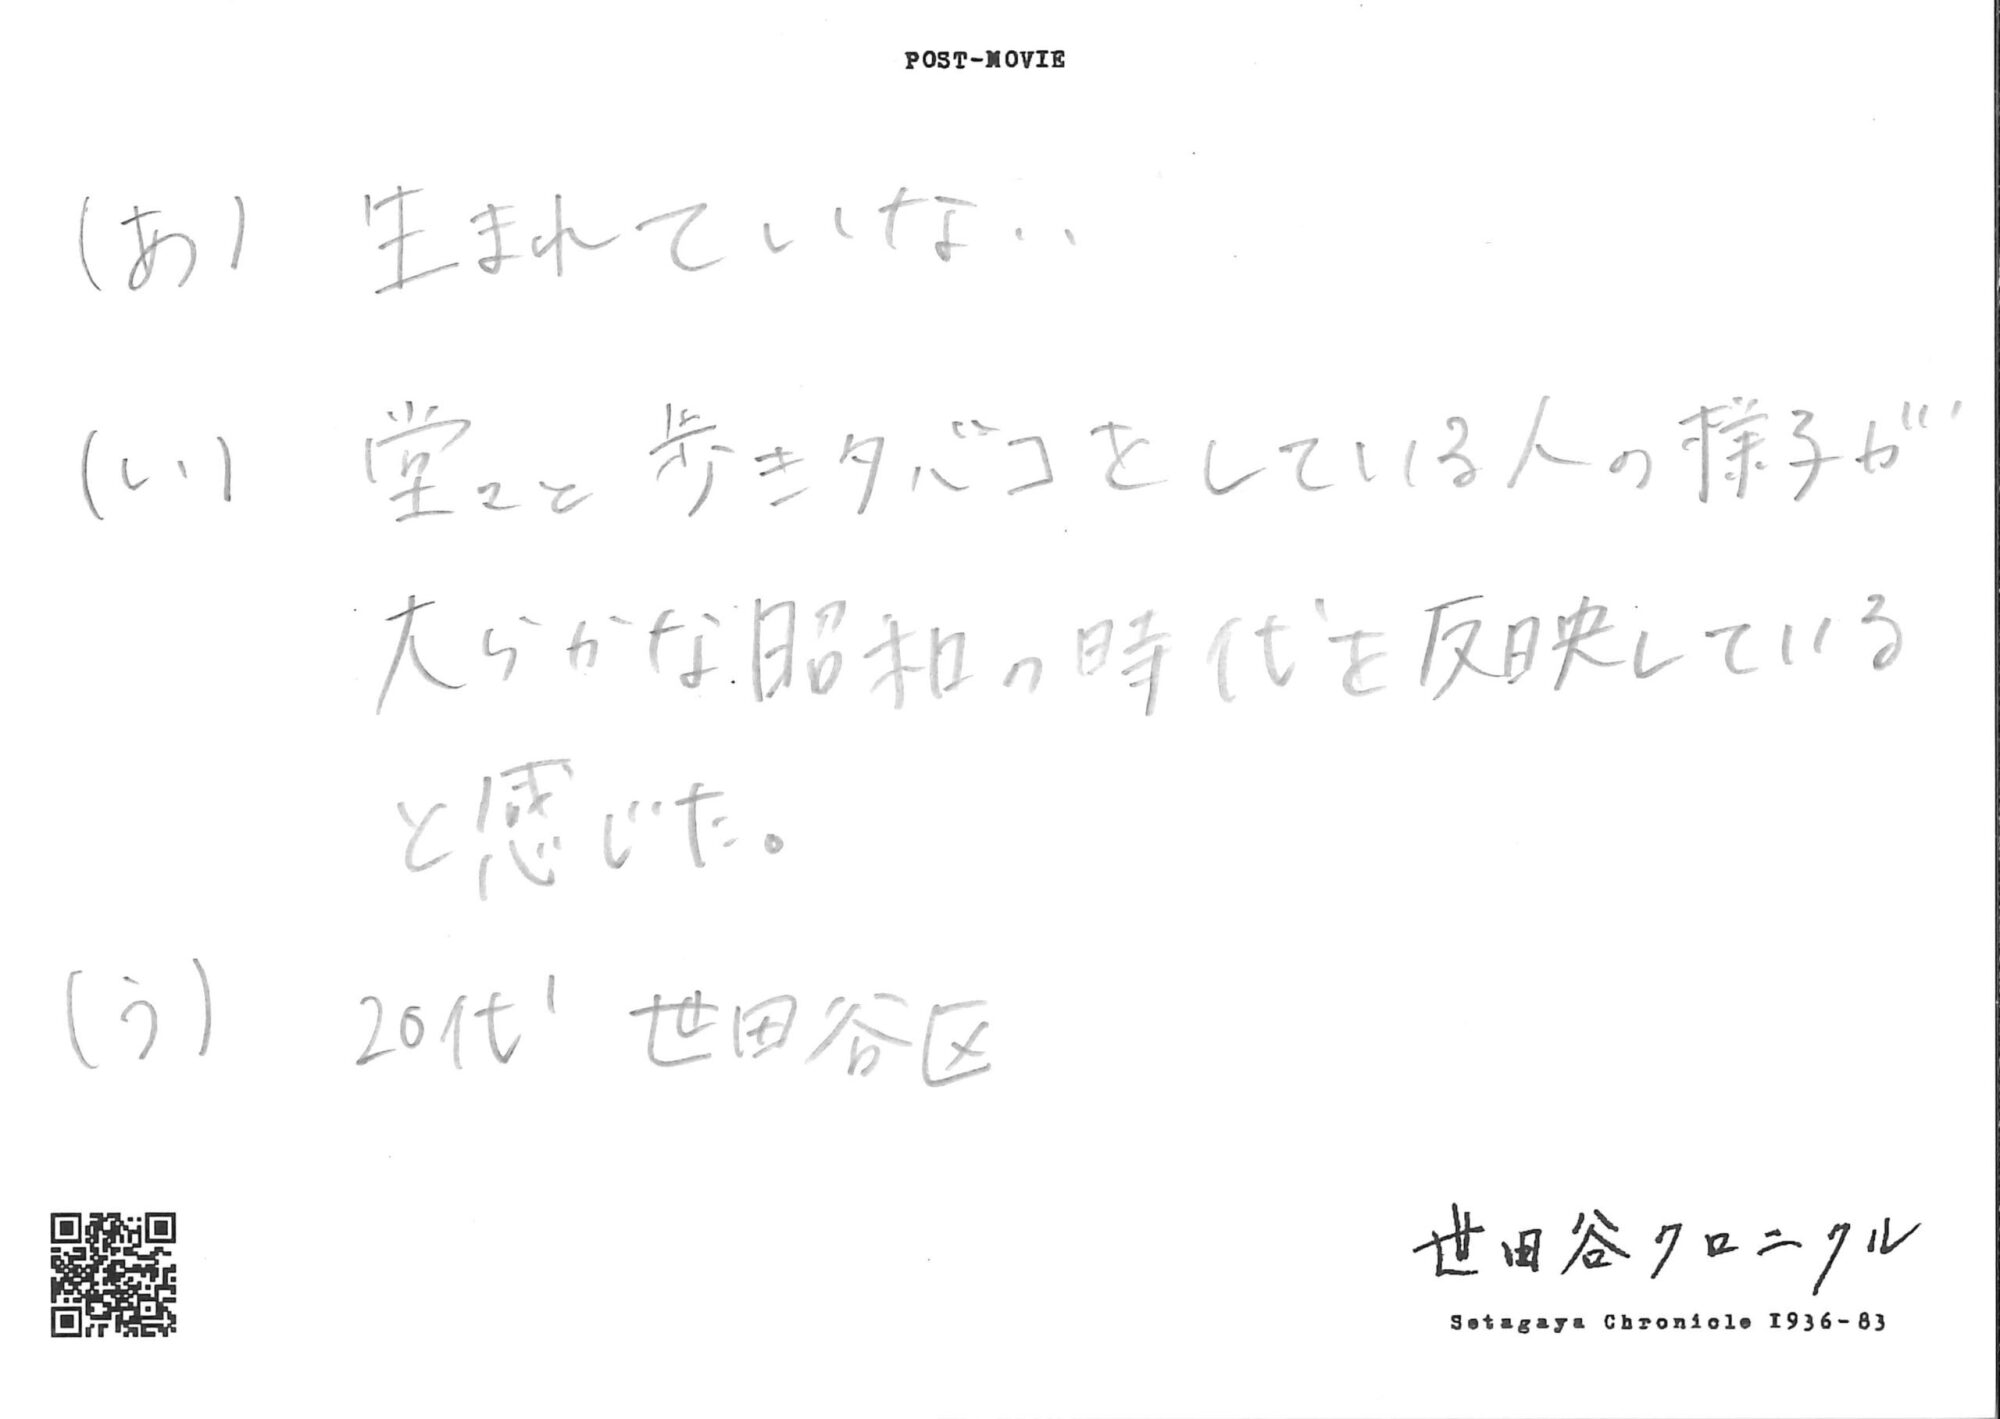 POST-MOVIE
(あ) 生まれていない
(い) 堂々と歩きタバコをしている人の様子が
大らかな昭和の時代を反映している
と感じた。
(う) 20代 世田谷区
世田谷クロニクル
Setagaya Chronicle 1936-83